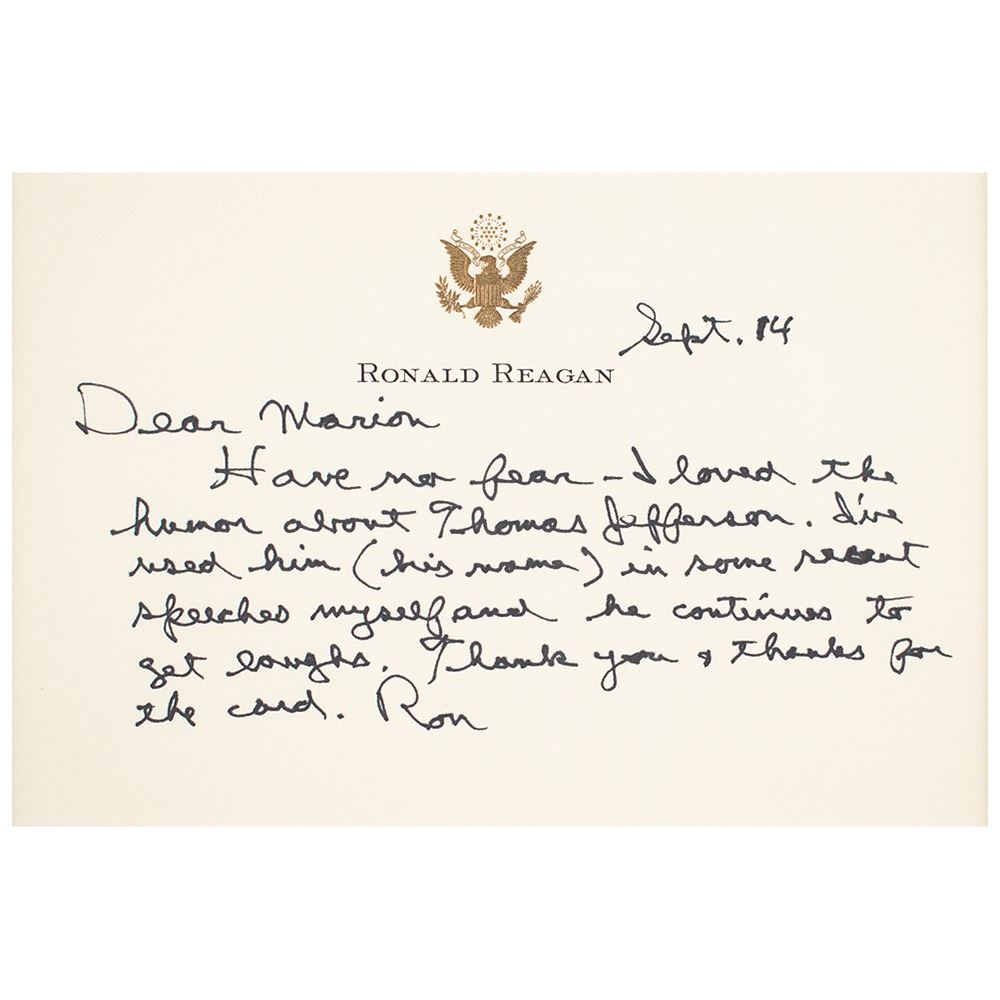 Sept. 14
RONALD REAGAN
Dear Marion
Have no fear – I loved the
humor about Thomas Jefferson. I've
used him (his name) in some recent
speeches myself and he continues to
get laughs. Thank you & thanks for
the card. Ron